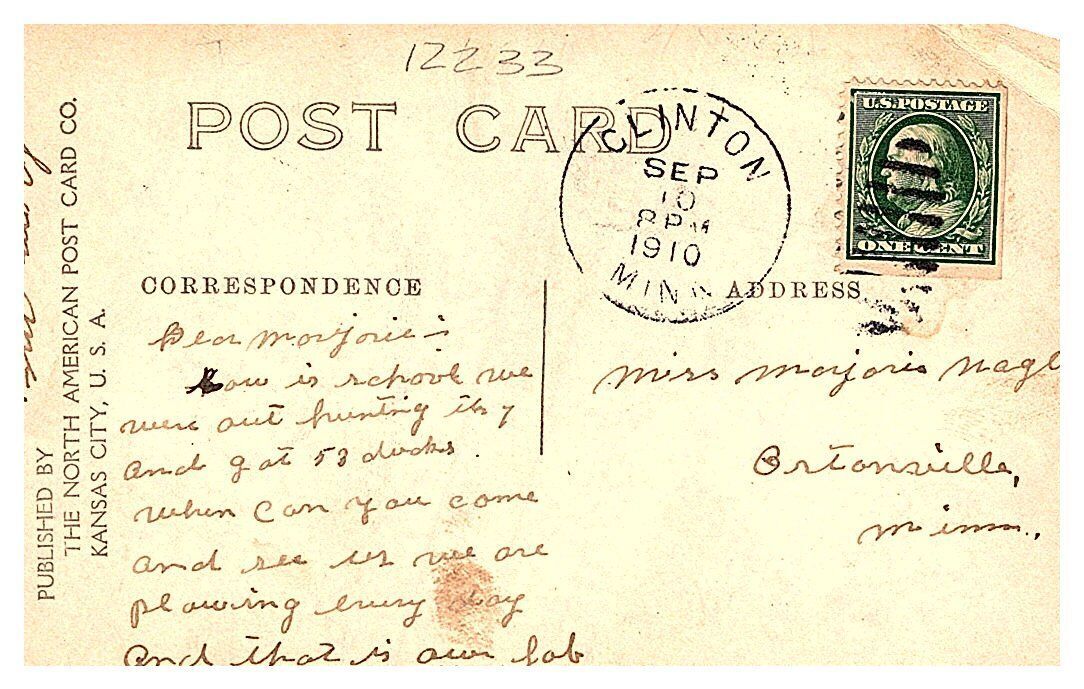 12233
POST CARD
CLINTON
SEP
10
8 PM
1910
MINN
U.S. POSTAGE
ONE CENT
PUBLISHED BY
THE NORTH AMERICAN POST CARD CO.
KANSAS CITY, U. S. A.
CORRESPONDENCE
ADDRESS
Dear Marjorie :-
How is school we
were out hunting
and got 53 ducks.
when can you come
and see us we are
plowing every day
And that is our job
Miss Marjorie Nagl
Ortonville,
Minn.,